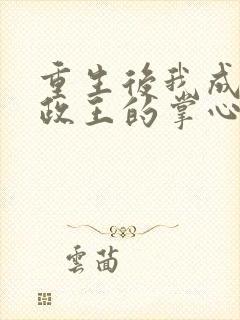 重生後我成
政王的掌心
雲茴